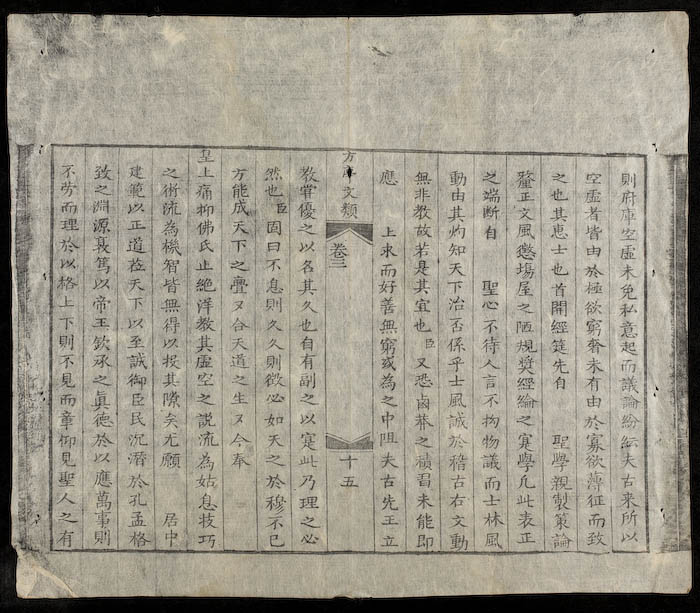 則府庫空虛未免私意起而議論紛紜夫古來所以
空虛者皆由於極欲窮奢未有由於寡欲薄征而致
之也其惠士也首開經筵先自 聖學親製策論
釐正文風懲場屋之陋規奬經綸之寔學凢此表正
之端斷自 聖心不待人言不拘物議而士林風
動由其灼知天下治否係乎士風誠於稽古右文動
無非教故若是其宜也臣又恐鹵莽之積習未能即
應 上求而好善無窮或為之中阻夫古先王立
方 文類 卷三 十五
教嘗優之以名其久也自有副之以寔此乃理之必
然也臣固曰不息則久久則徵必如天之於穆不已
方能成天下之亹又合天道之生又今奉
皇上痛抑佛氏止絕洋教其虛空之説流為姑息技巧
之術流為機智皆無得以投其隙矣尤願 居中
建範以正道莅天下以至誠御臣民沉潛於孔孟格
致之淵源裒篤以帝王欽承之眞德於以應萬事則
不劳而理於以格上下則不見而章仰見聖人之有